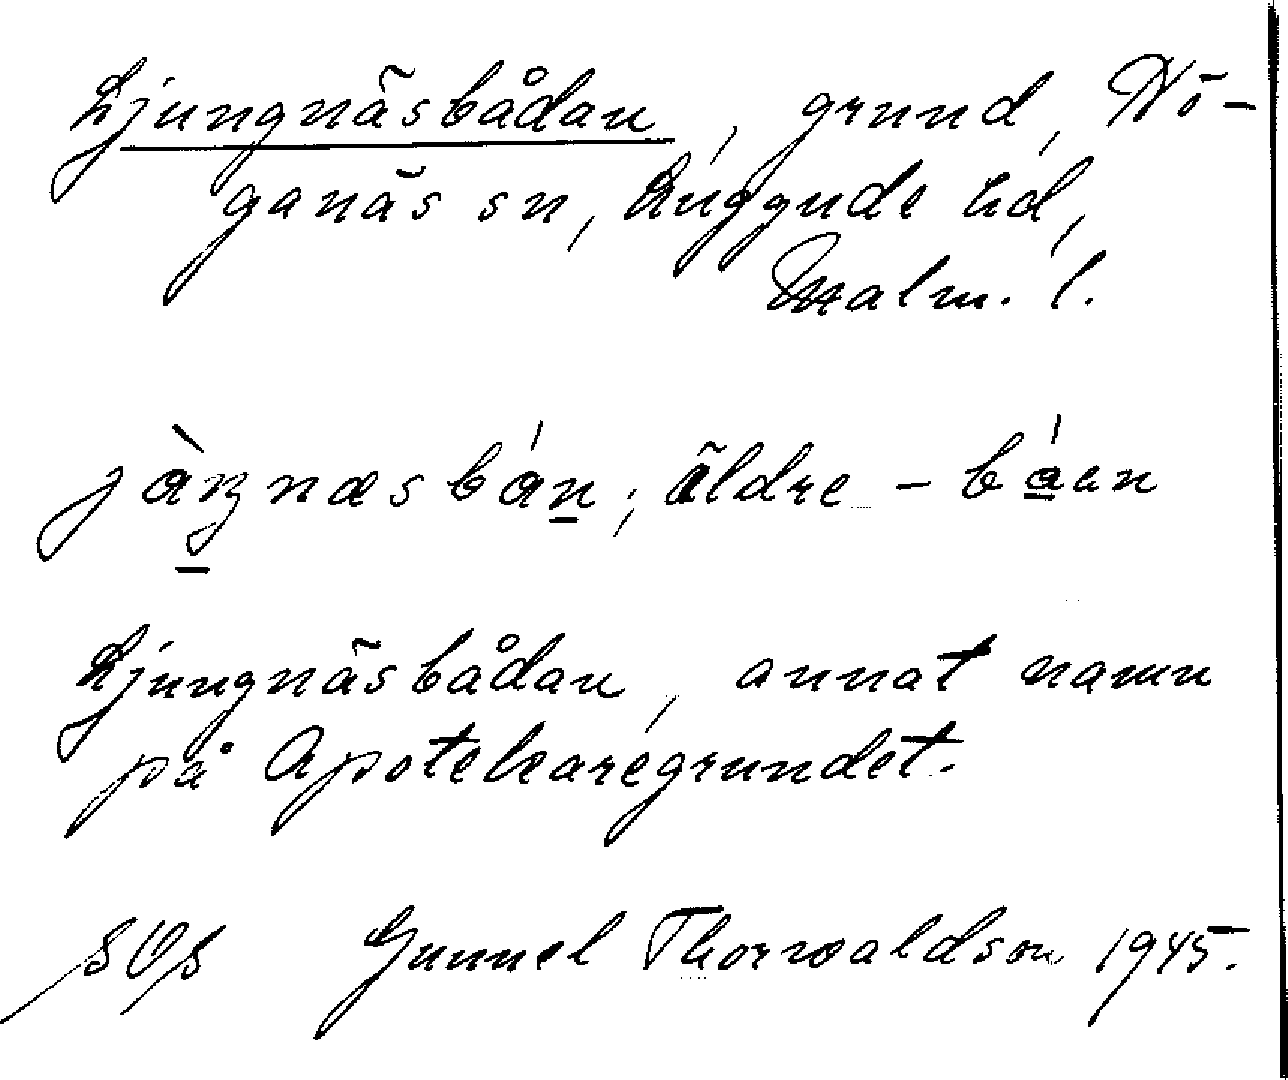 Ljungnäsbådan, grund, Hö-
ganäs sn, Luggude hd,
Malm. l.
jàŋnæsbán; äldre -báen
Ljungnäsbådan, annat namn
på Apotekaregrundet.
Gunnel Thorwaldson 1945.